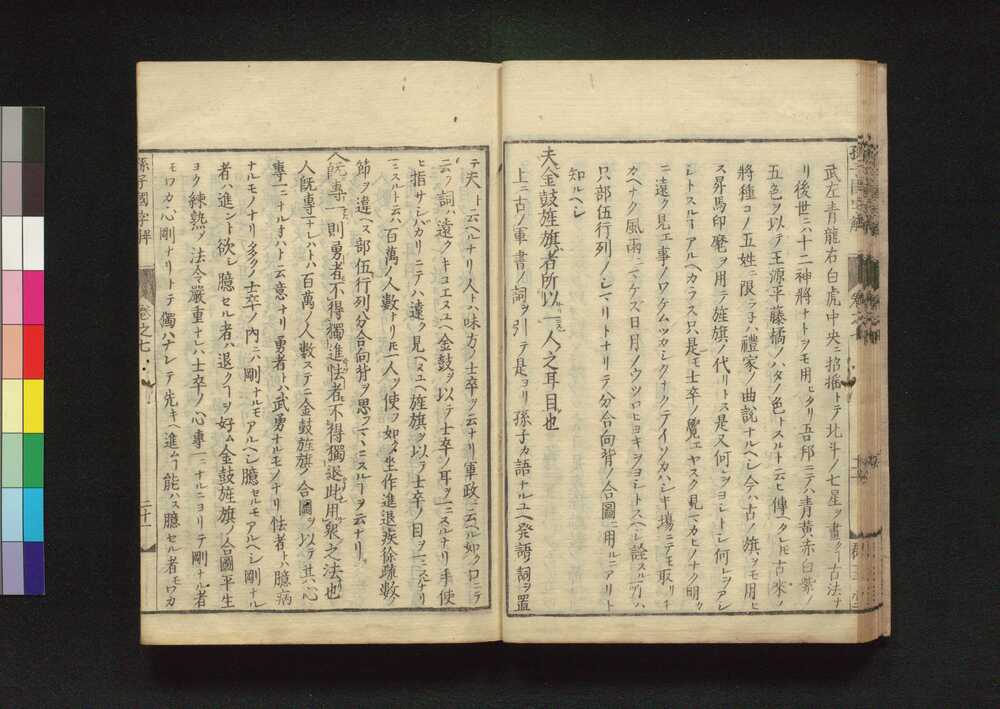 武左青龍右白虎中央ニ招搖トテ北斗ノ七星ヲ畫ク古法ナ
リ後世ニハ十二神將ナトヲモ用ヒタリ吾邦ニテハ青黄赤白紫ノ
五色ヲ以テ王源平藤橘ノハタノ色トスルト云ヒ傳フクレ𪜈古來ノ
將種コノ五姓ニ限ラネハ禮家ノ曲説ナルヘシ今ハ古ノ旗ヲモ用ヒ
ス昇馬印麾ヲ用テ旌旗ノ代リトス是又何レヲヨシトシ何レヲアシ
シトスルヿアルヘカラス只是モ士卒ノ覺エヤスク見マカヒノナク明カ
ニ遠ク見エ事ノワケムツカシクナクテイソカハシキ場ニテモ取リチ
カヘナク風雨ニマケズ日月ノウツロヒヨキヲヨシトスヘシ詮スル所ハ
只部伍行列ノシマリトナリテ分合向背ノ合圖ニ用ルニアリト
知ルヘシ
夫金鼓旌旗者所以一人之耳目也
上ニ古ノ軍書ノ詞ヲ引テ是ヨリ孫子カ語ナルユヘ発語詞ヲ置
テ夫ト云ヘルナリ人ト味方ノ士卒ヲ云ナリ軍政ニ云ヘル如ク口ニテ
云フ詞ハ遠クキコエヌユヘ金鼓ヲ以テ士卒ノ耳ヲ一ニスルナリ手使
ヒ指サシバカリニテハ遠ク見ヘヌユヘ旌旗ヲ以テ士卒ノ目ヲ一ニスルナリ
一ニスルト云ハ百萬ノ人數ナリ𪜈一人ヲ使フ如ク坐作進退疾徐疏數ノ
節ヲ違ヘス部伍行列分合向背ヲ思フマヽニスルヿヲ云ナリ
人既專一則勇者不得獨進怯者不得獨退此用衆之法也
人既專ナレハトハ百萬ノ人數ステニ金鼓旌旗ノ合圖ヲ以テ其心
專一ニナルナハト云意ナリ勇者トハ武勇ナルモノナリ怯者トハ臆病
ナルモノナリ多クノ士卒ノ内ニハ剛ナルモアルヘシ臆セルモアルヘシ剛ナル
者ハ進ント欲シ臆セル者ハ退クヿヲ好ム金鼓旌旗ノ合圖平生
ヨク練熟シ法令嚴重ナレハ士卒ノ心專一ナルニヨリテ剛ナル者
モワカ心剛ナリトテ獨ハナレテ先キヘ進ムヿ能ハス臆セル者モワカ
孫子國字解
卷之七
二十一